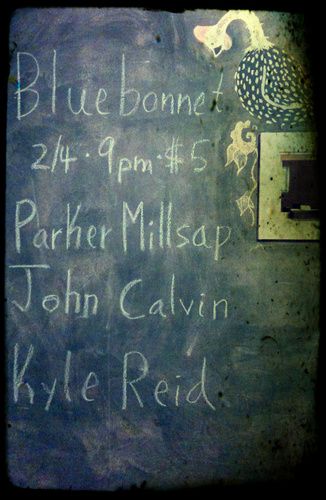 Bluebonnet
2/4 · 9pm · $5
Parker Millsap
John Calvin
Kyle Reid